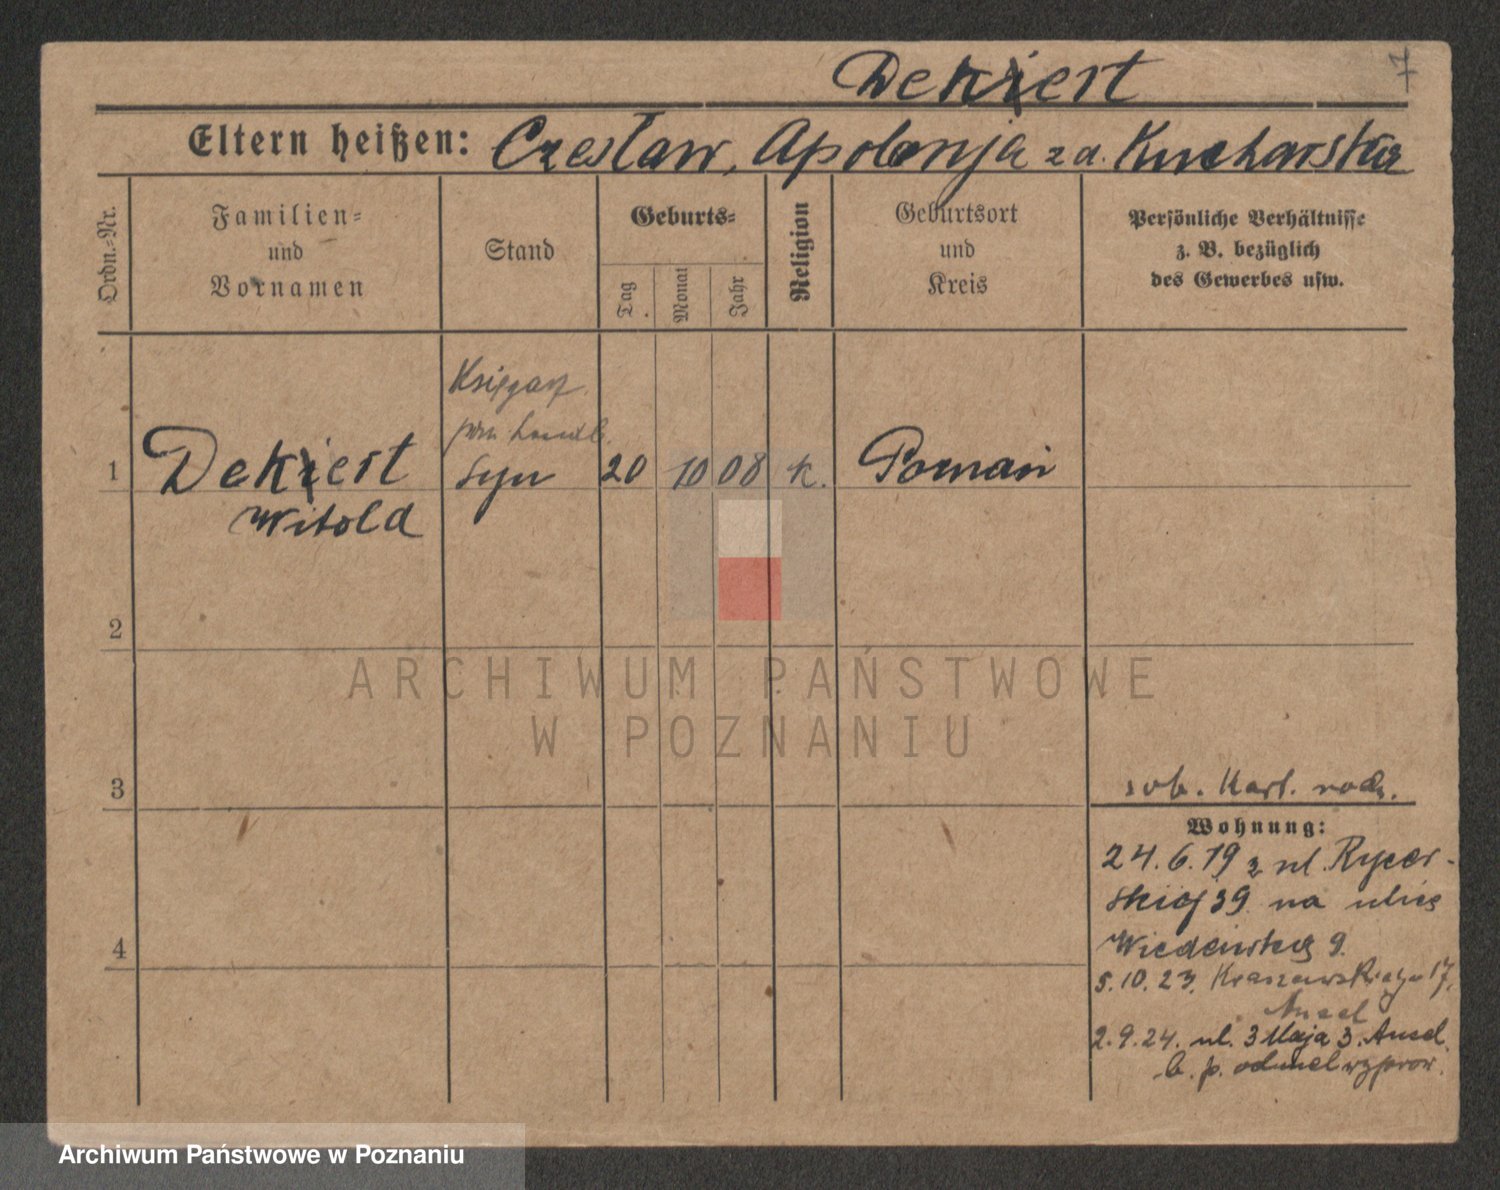 7
Dekiert
Eltern heißen: Czesław, Apolonja z d. Kucharska
Ordn.=Nr.
Familien=
und
Vornamen
Stand
Geburts=
Tag
Monat
Jahr
Religion
Geburtsort
und
Kreis
Persönliche Verhältnisse
z. B. bezüglich
des Gewerbes usw.
Księgarz
pom handl.
1 Dekiert syn 20 10 08 k. Poznań
Witold
2
ARCHIWUM PAŃSTWOWE
W POZNANIU
3
zob. Kart. rodz.
Wohnung:
24.6.19 z ul. Rycer-
skiej 39 na ulicę
Wiedeńską 9.
4
5.10.23. Kraszewskiego 17,
Ansel
2.9.24. ul. 3 Maja 3. Ansel.
b. p.
Archiwum Państwowe w Poznaniu